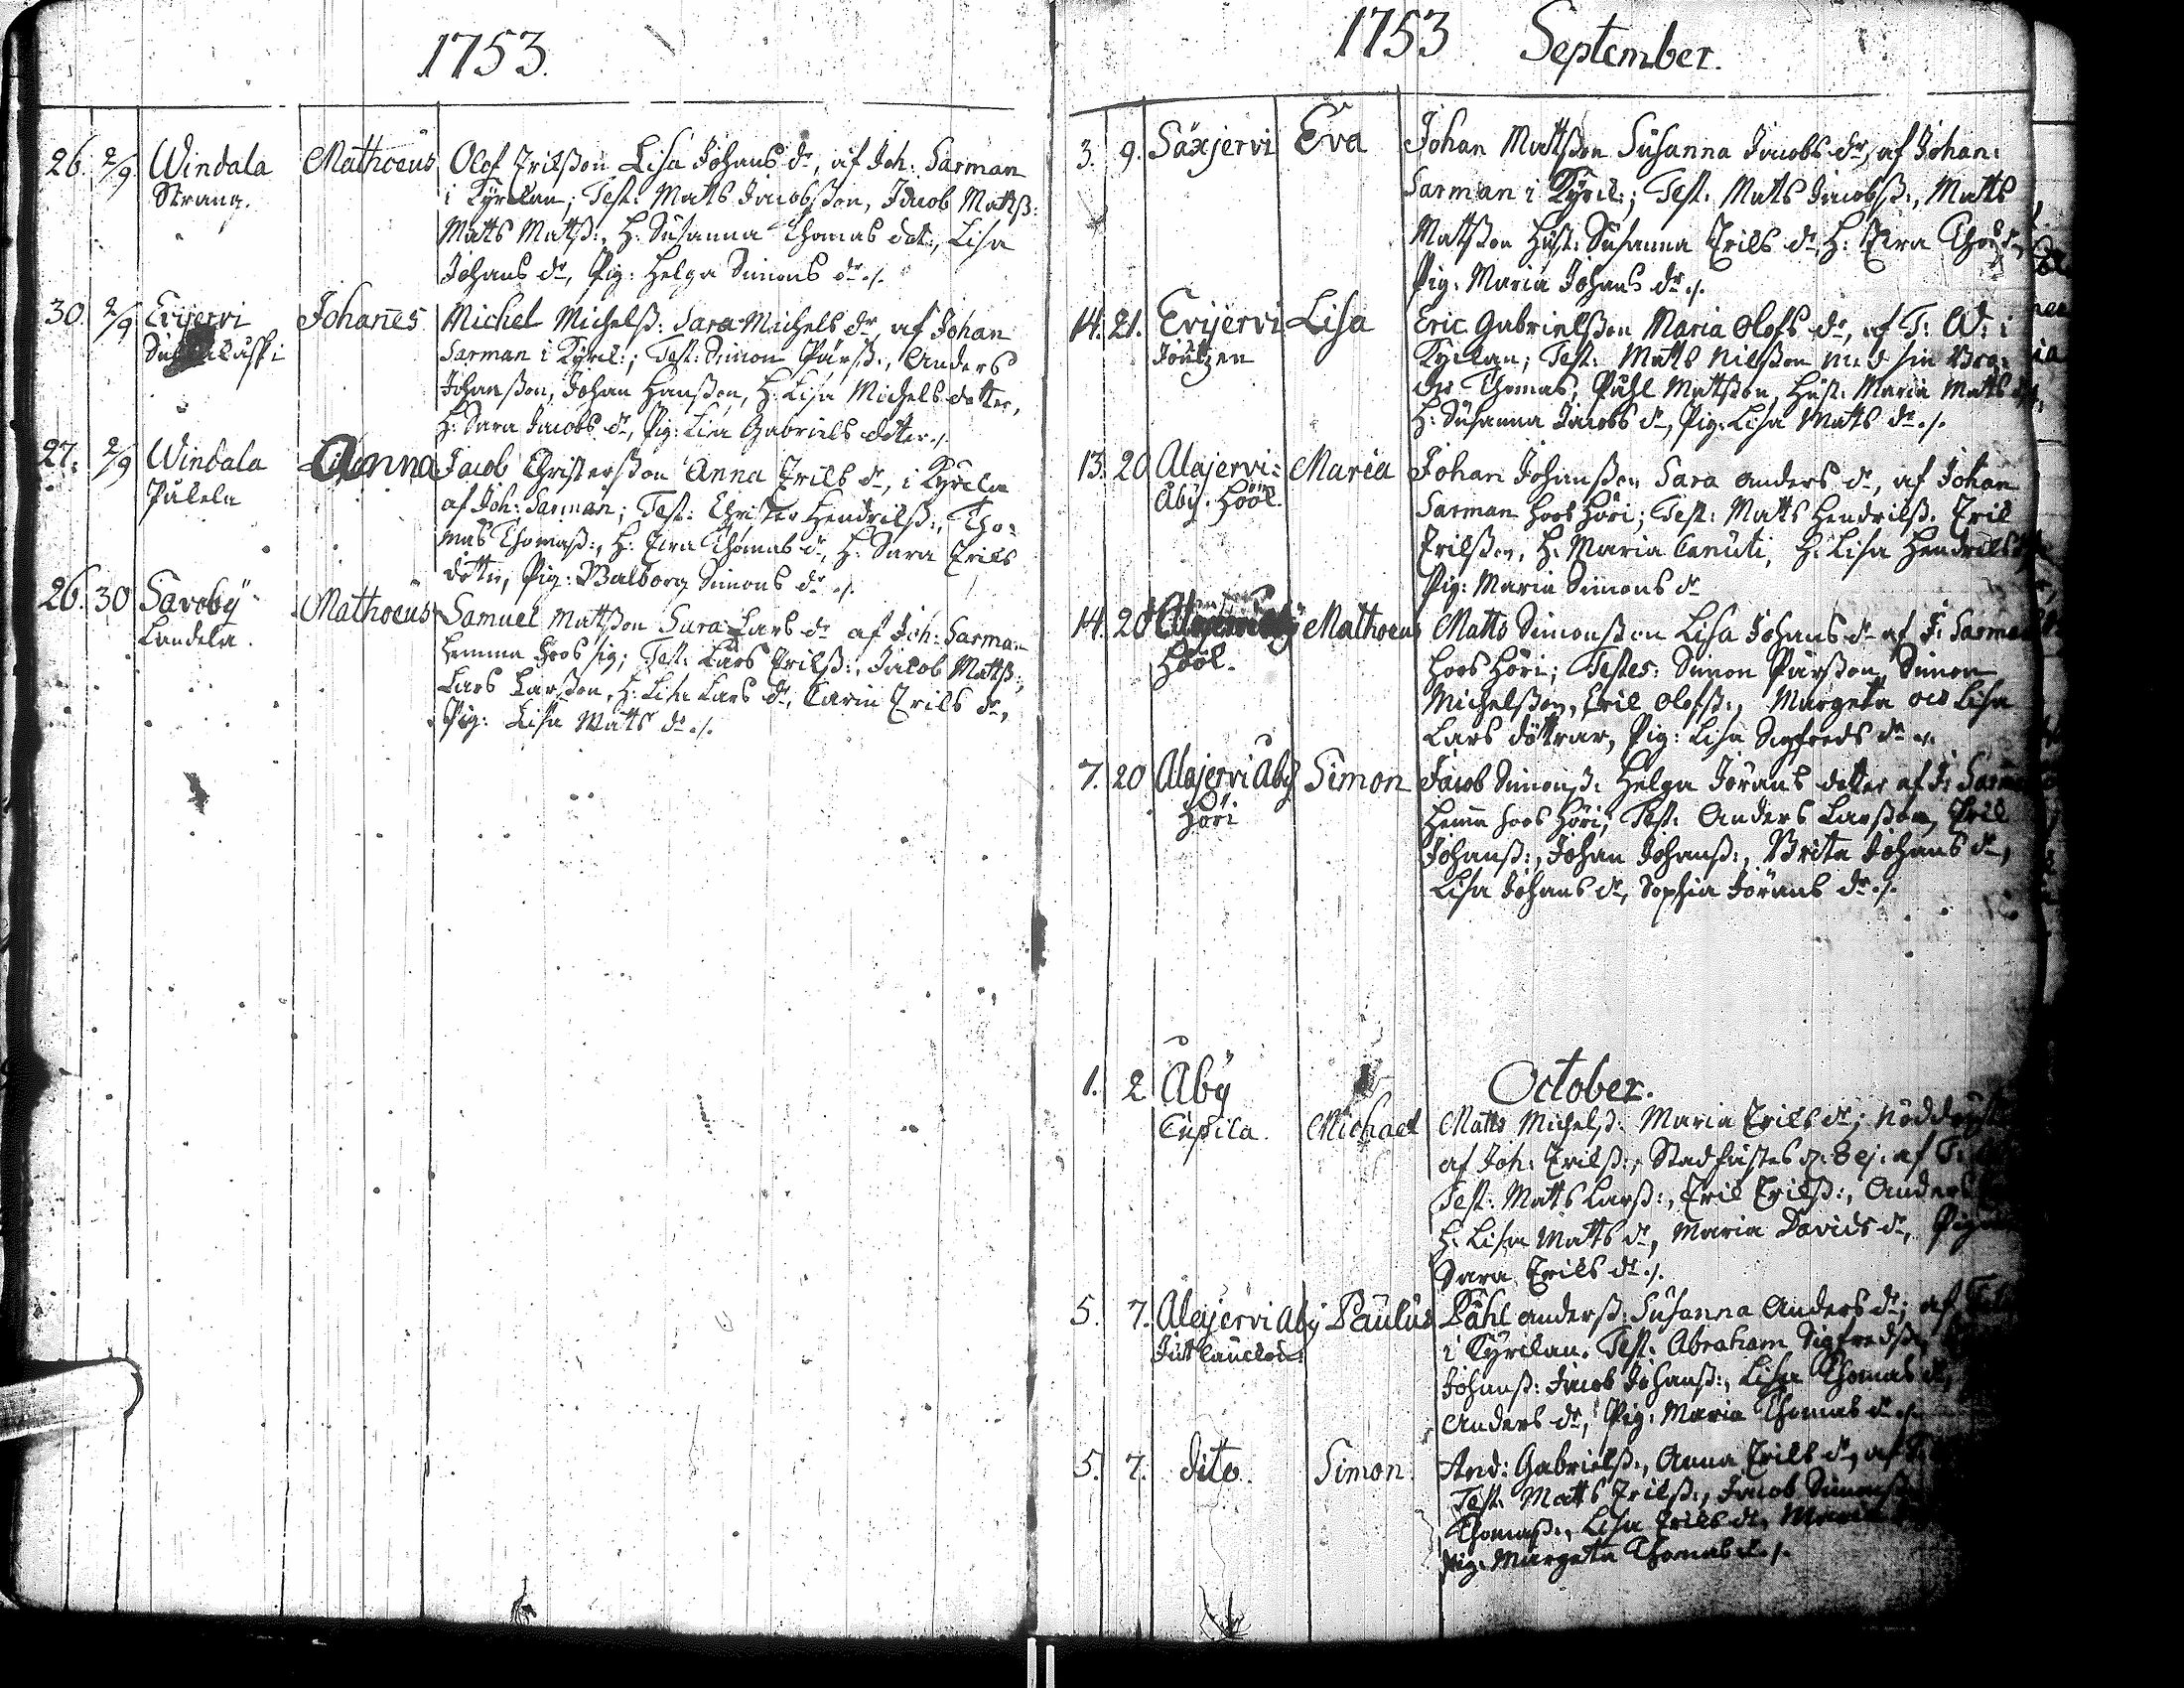 1753.
26. 2/9 Windala Mathoeus Olof Erikßon Lisa Johans dr, af Joh: Sarman
Strang. i Kyrckan; Test: Matts Jacobßon, Jacob Mattß:
Matts Mattß:, H: Susanna Thomas dot:, Lisa
Johans dr, Pig: Helga Simons dr./.
30. 2/9 Evijervi Johañes Michel Michelß: Sara Michels dr af Johan
Sarman i Kyrck:; Test: Simon Pärß:, Anders
Johanßon, Johan Hanßon, H: Lisa Michels dotter,
H: Sara Jacobs dr, Pig: Lisa Gabriels dotter./.
27. 2/9 Windala Anna Jacob Christerßon Anna Eriks dr, i Kyrcka
Pukela af Joh: Sarman; Test: Christer Hendrikß:, Tho-
mas Thomaß:, H: Thomas dr, H: Sara Eriks
dotter, Pig: Walborg Simons dr ./.
26. 30 Savoby Mathoeus Samuel Mattßon Sara Lars dr af Joh: Sarman
Landela. hemma hos sig; Test: Lars Erikß:, Jacob Mattß:,
Lars Larßon, H: Lisa Lars dr, Carin Eriks dr,
Pig: Lisa Matts dr./.
1753 September.
3. 9. Säxjervi Eva Johan Mattßon Susanna Jacobs dr, af Johan
Sarman i Kyrck:; Test: Matts Jacobß:, Matts
Mattßon Hust: Susanna Eriks dr, H:
Pig: Maria Johans dr./.
14. 21. Evijervi Lisa Eric Gabrielßon Maria Olofs dr, af T: W: i
Joutzen Kyrckan; Test: Matts Nilßon med sin Bro-
der Thomas, Påhl Mattßon, Hust: Maria Matts
H: Susanna Jacobs dr, Pig: Lisa Matts dr./.
13. 20 Alajervi: Maria Johan Johanßon Sara Anders dr, af Johan
Åby. Höök. Sarman hos Höri; Test: Matts Hendrikß: Erik
Erikßon, H: Maria Canuti, H: Lisa Hendriks
Pig: Maria Simons dr
14. 20 Mathoeus Matts Simonßon Lisa Johans dr af J: Sarman
Höök. hos Höri; Testes: Simon Pärßon, Simon
Michelßon, Erik Olofß:, Margeta och Lisa
Lars döttrar, Pig: Lisa Sigfreds dr
7. 20 Alajervi Åby Simon Jacob Simonß: Helga Jörans dotter af J:
Höri hema hos Höri; Test: Anders Larßon, Erik
Johanß:, Johan Johanß:, Brita Johans dr,
Lisa Johans dr, Sophia Jörans dr./.
October.
1. 2 Åby
Cupila. Michael Matts Michelß: Maria Eriks dr;
af Joh: Erikß:, Stadfästes af
Test: Matts Larß:, Erik Erikß:, Anders
H: Lisa Matts dr, Maria Davids dr,
Sara Eriks dr./.
5. 7. Alajervi Åby Paulus Påhl Anderß: Susanna Anders dr; af
i Kyrckan. Test: Abraham Sigfredß:
Johanß: Jacob Johanß:, Lisa Thomas dr,
Anders dr, Pig: Maria Thomas dr
5. 7. dito. Simon And: Gabrielß:, Anna Eriks dr, af
Test: Matts Erikß:, Jacob Simonß
Thomaß:, Lisa Eriks dr,
Pig: Margeta Thomas dr./.